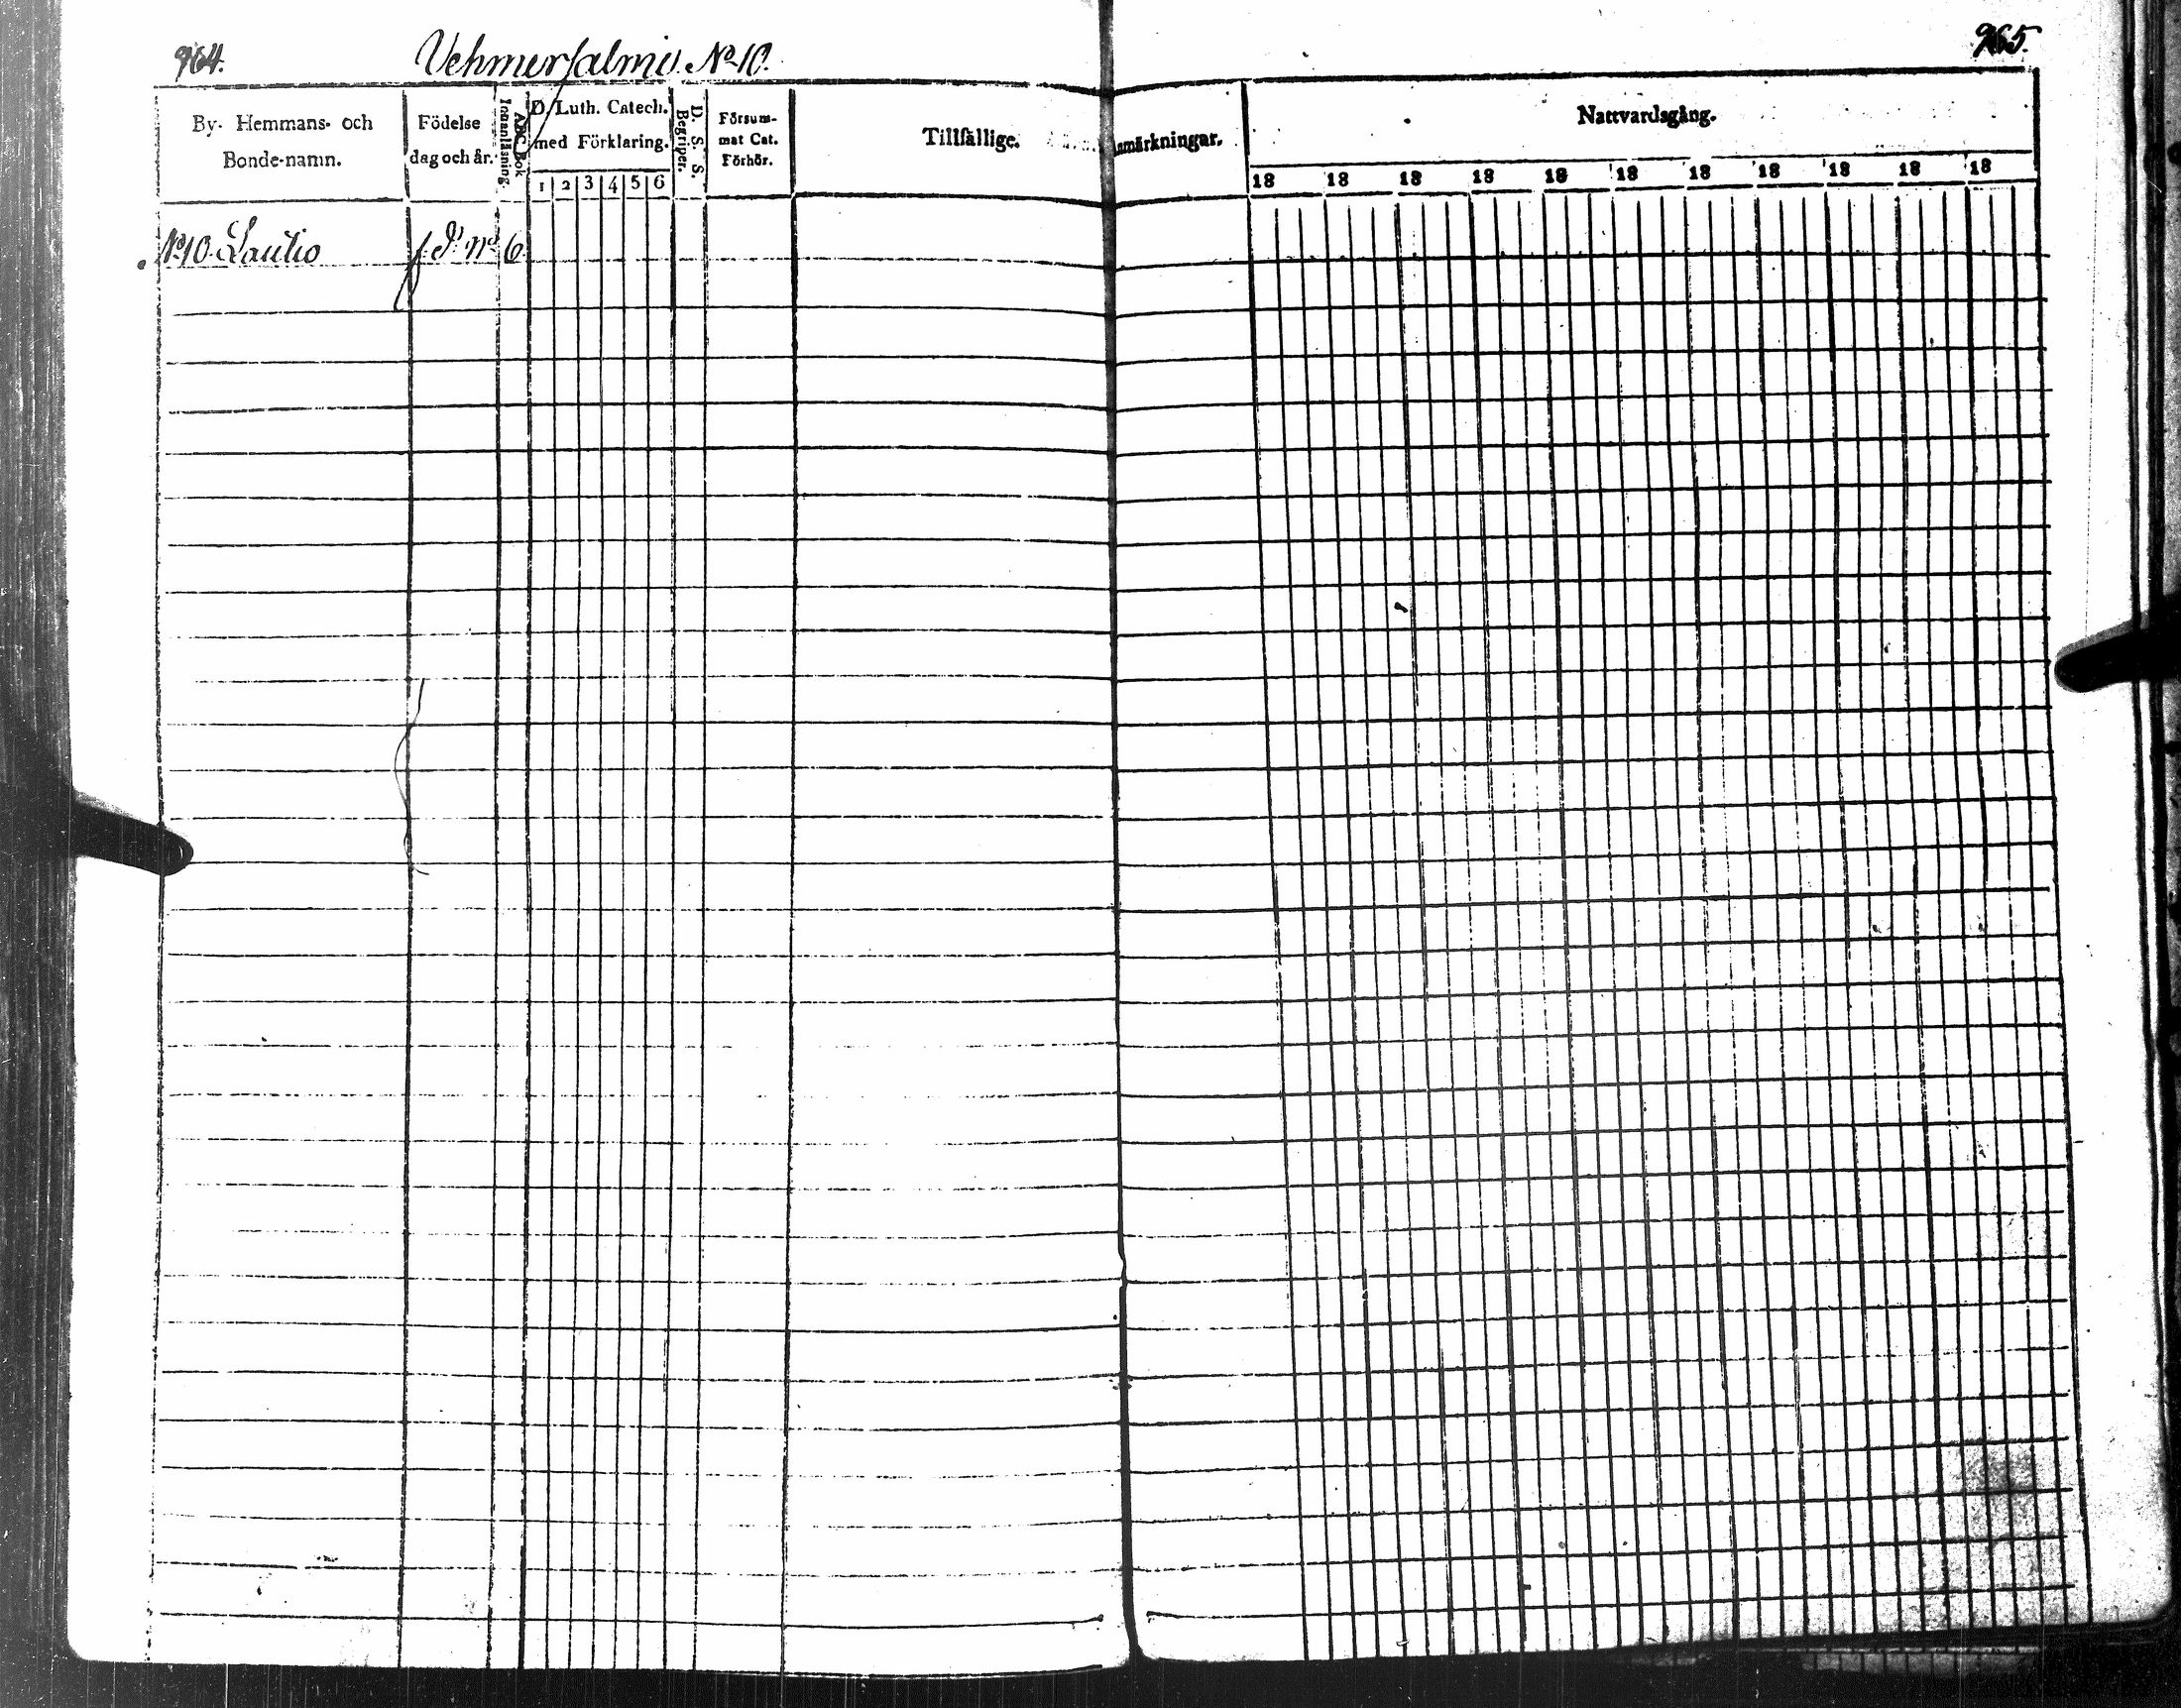 964.
Vehmersalmi. No 10.
965.
By- Hemmans- och
Bonde-namn.
Födelse
dag och år.
ABC-Bok
Innanläsning.
D. Luth. Catech.
med Förklaring.
1 2 3 4 5 6
D. S. S.
Begriper.
Försum-
mat Cat.
Förhör.
Tillfällige. Anmärkningar.
Nattvardsgång.
18 18 18 18 18 18 18 18 18 18 18
No 10 Lautio
No 6